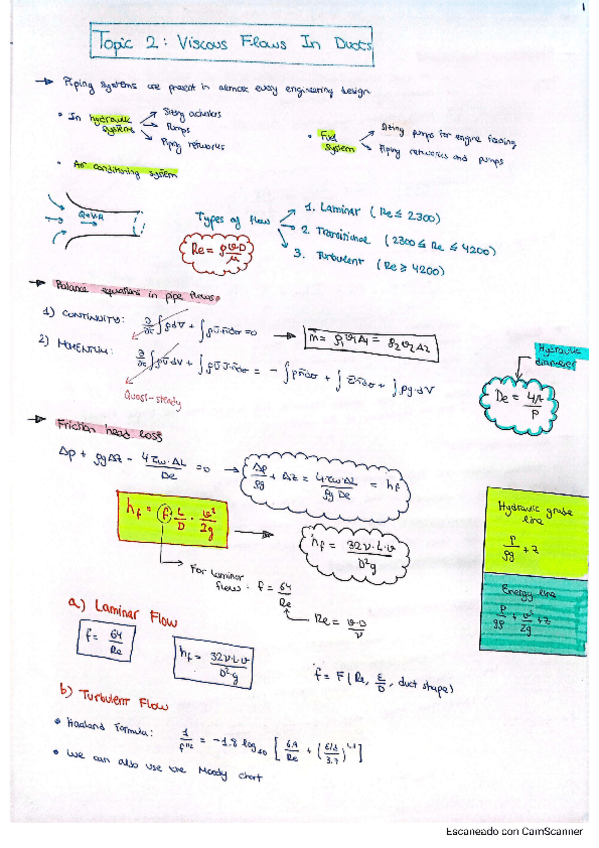 1
Topic 2: Viscous Flows In Ducts
→ Piping systems are present in almost every engineering design
• In hydraulic systems → Sizing actuators
→ Pumps
→ Piping networks
• Fuel system → Sizing pumps for engine feeding
→ Piping networks and pumps
• Air conditioning system
Q=V·A
Types of flow
1. Laminar (Re ≤ 2300)
2. Transitional (2300 ≤ Re ≤ 4200)
3. Turbulent (Re ≥ 4200)
Re = ρ v·D / μ
→ Balance equations in pipe flows
1) CONTINUITY: ∂/∂t ∫ρdV + ∫ρv̄·n̄dσ = 0 → ṁ = ρ₁v₁A₁ = ρ₂v₂A₂
2) MOMENTUM: ∂/∂t ∫ρv̄dV + ∫ρv̄ v̄·n̄dσ = - ∫pn̄dσ + ∫τ̄n̄dσ + ∫ρg·dV
Quasi-steady
Hydraulic diameter
De = 4A / P
→ Friction head loss
Δp + ρgΔz - 4τω·ΔL / De = 0 → Δp/ρg + Δz = 4τω·ΔL / ρg De = hf
hf = f · L/D · v²/2g → hf = 32ν·L·v / D²g
For laminar flows · f = 64/Re
Re = v·D / ν
Hydraulic grade line
p/ρg + z
Energy line
p/ρg + v²/2g + z
a) Laminar Flow
f = 64/Re
hf = 32ν·L·v / D²g
f = F(Re, ε/D, duct shape)
b) Turbulent Flow
• Haaland Formula: 1/f^1/2 = -1.8 log₁₀ [ 6.9/Re + (ε/d / 3.7)^1.11 ]
• We can also use the Moody chart
Escaneado con CamScanner